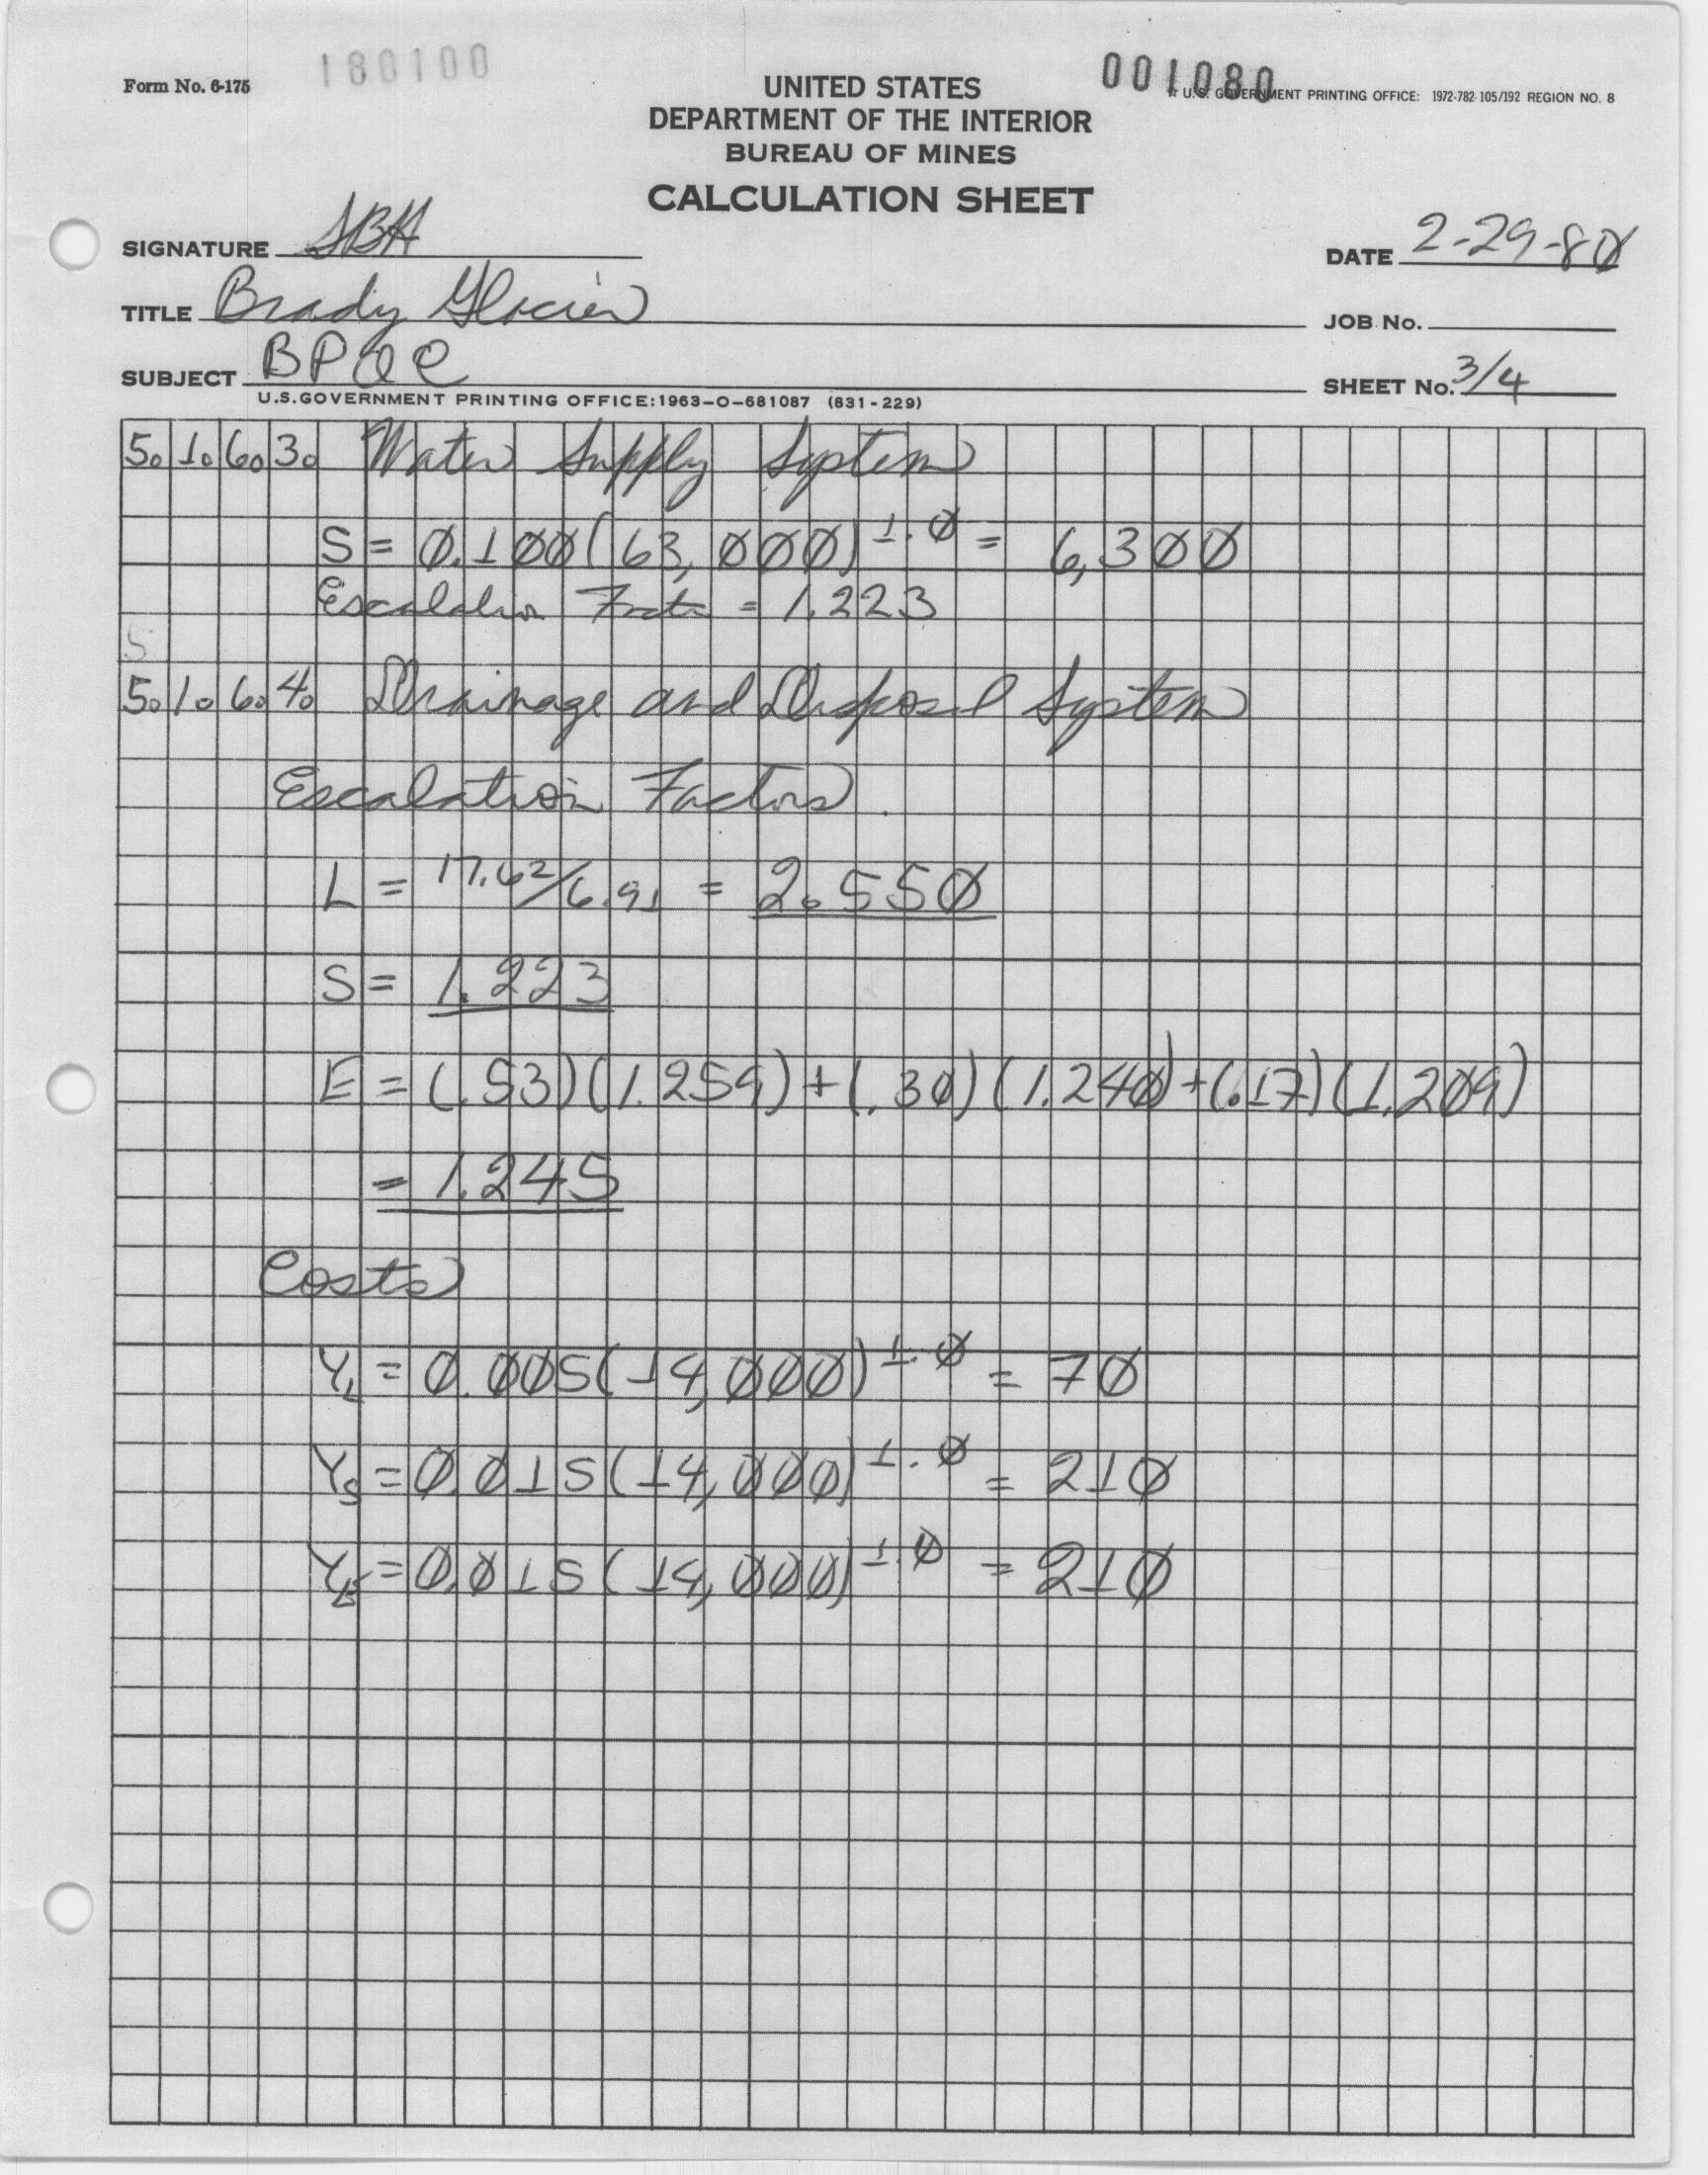 180100
001080
Form No. 6-175
UNITED STATES
☆ U.S. GOVERNMENT PRINTING OFFICE: 1972-782-105/192 REGION NO. 8
DEPARTMENT OF THE INTERIOR
BUREAU OF MINES
CALCULATION SHEET
SIGNATURE
DATE 2-29-80
TITLE Brady Glacier
JOB No.
SUBJECT BPQC
SHEET No. 3/4
U.S.GOVERNMENT PRINTING OFFICE:1963-O-681087 (831-229)
5.1.6.3. Water Supply System
S = 0.100(63,000)^1.0 = 6,300
Escalation Factor = 1.223
5
5.1.6.4. Drainage and Disposal System
Escalation Factors
L = 17.62/6.91 = 2.550
S = 1.223
E = (.53)(1.259)+(.30)(1.240)+(.17)(1.209)
= 1.245
Costs
Y_L = 0.005(14,000)^1.0 = 70
Y_S = 0.015(14,000)^1.0 = 210
Y_E = 0.015(14,000)^1.0 = 210